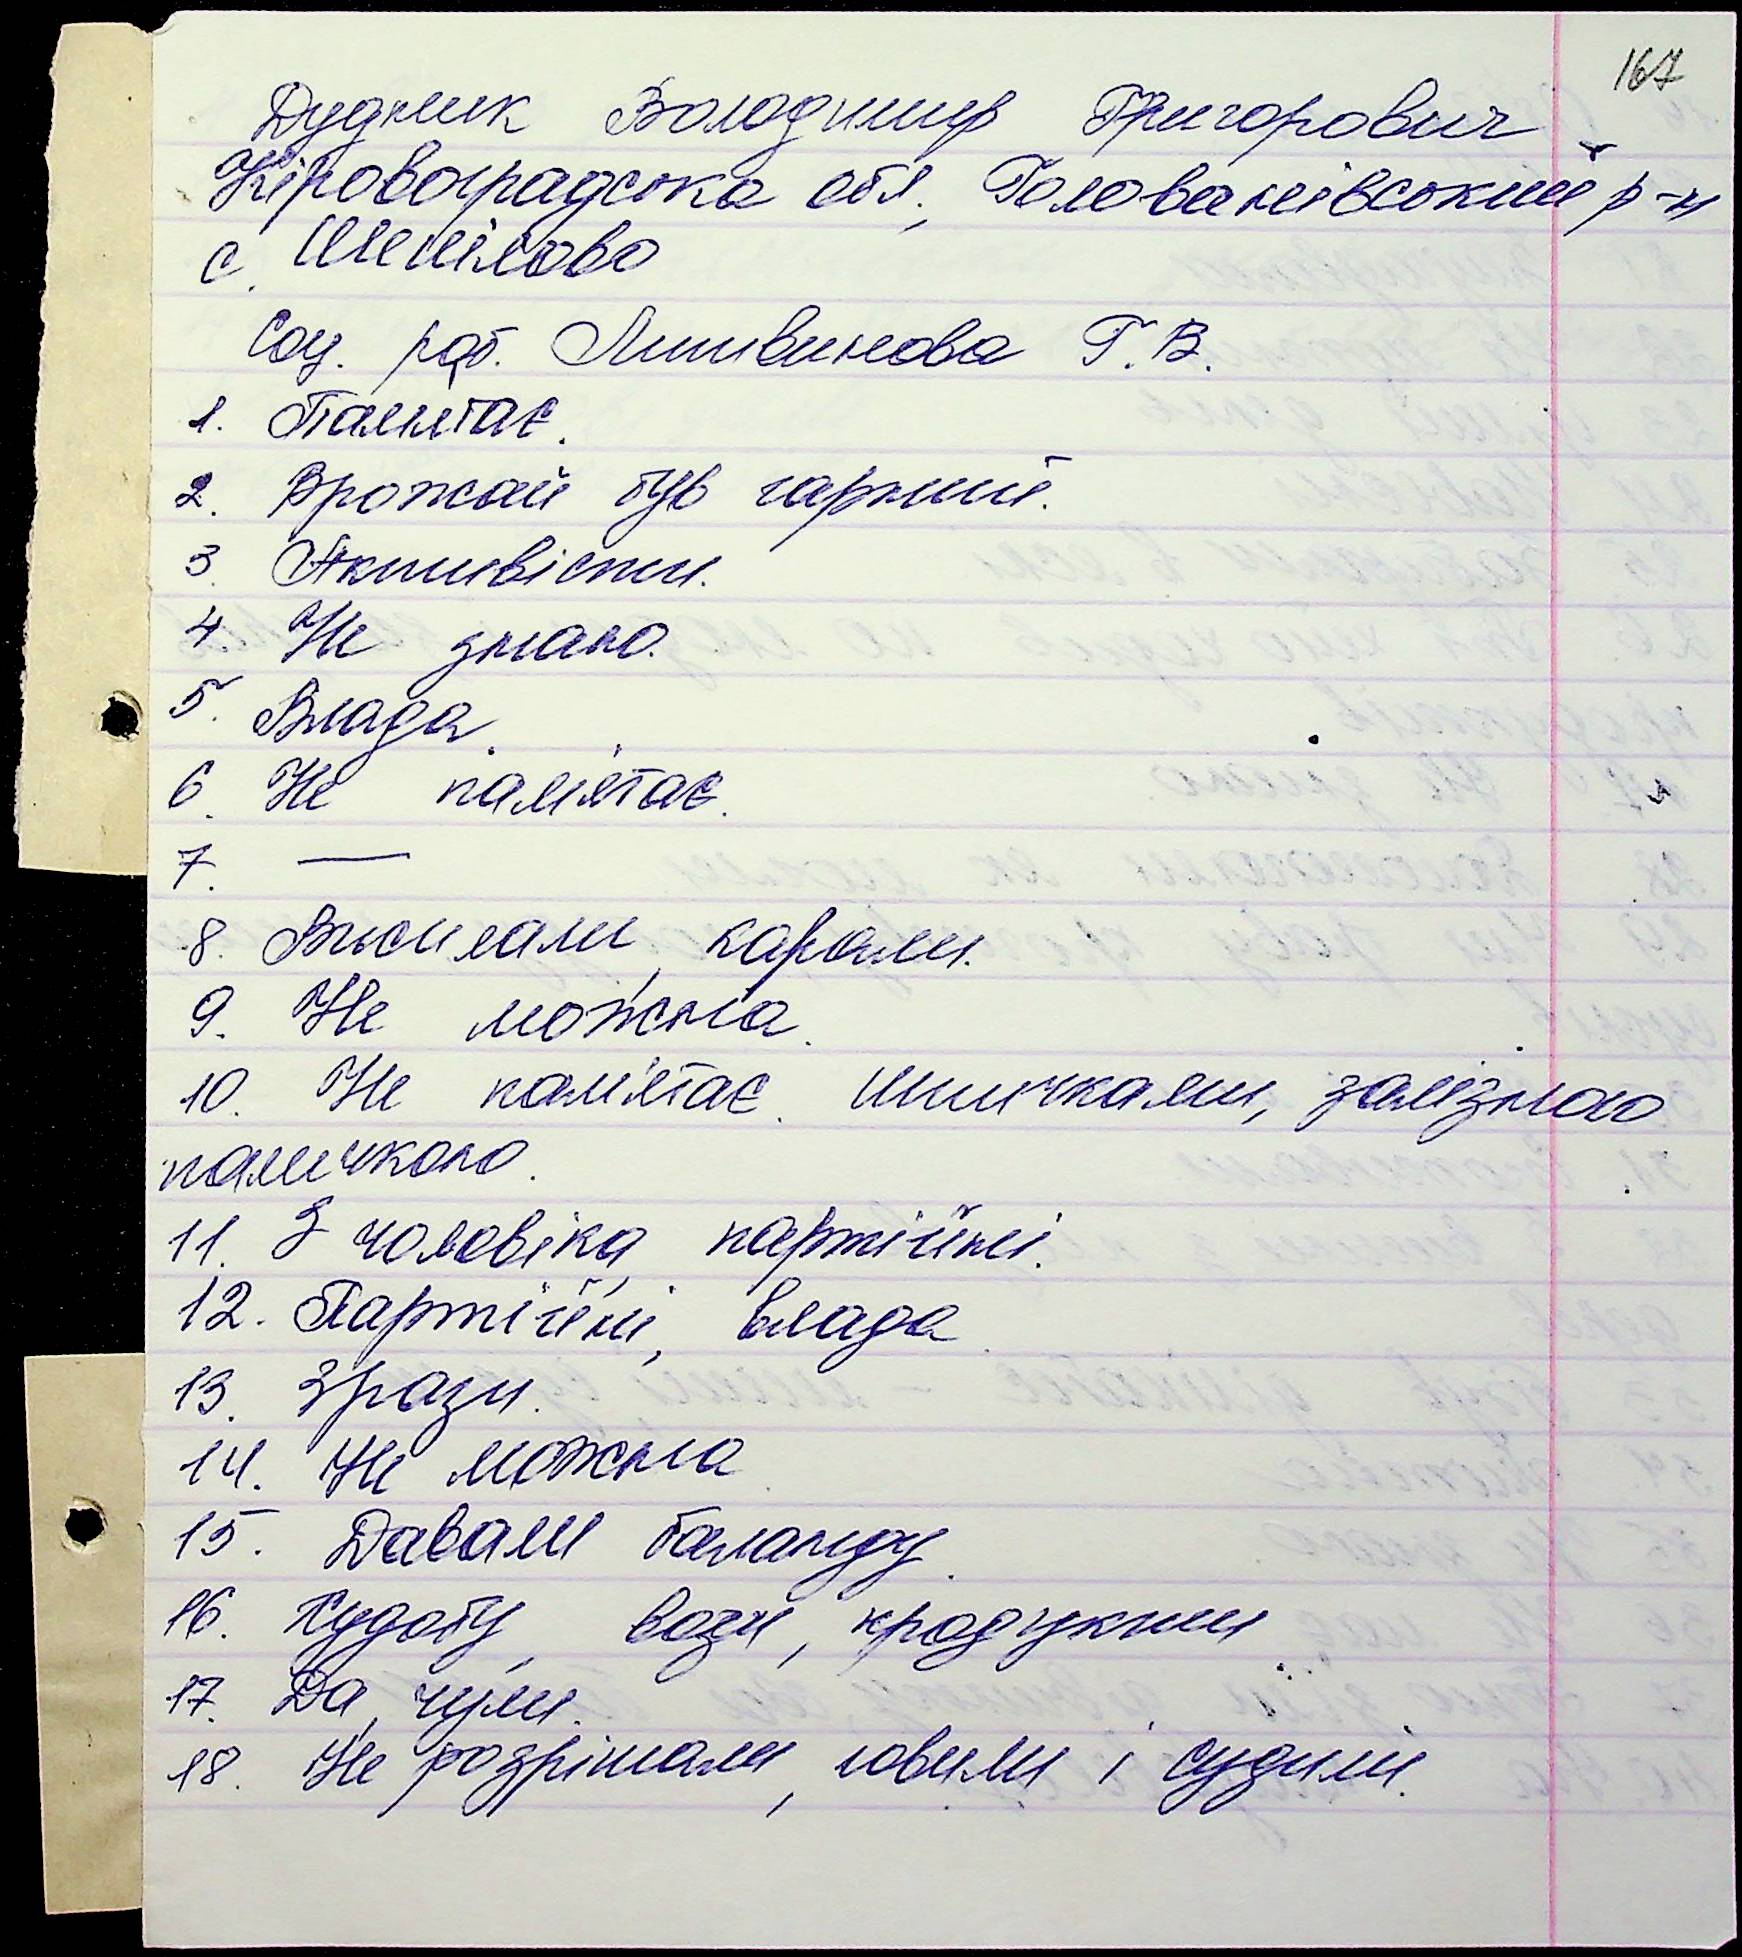 167
Дудник Володимир Григорович
Кіровоградська обл, Голованівський р-н
с. Шепілово
Соц. роб. Литвинова Г. В.
1. Памятає.
2. Врожай був гарний.
3. Активісти.
4. Не знаю.
5. Влада.
6. Не пам'ятає.
7. —
8. Висилали, карали.
9. Не можна.
10. Не пам'ятає. Шпичками, залізною
паличкою.
11. 3 чоловіка, партійні.
12. Партійні, влада.
13. Зрази.
14. Не можна.
15. Давали баланду.
16. Худобу, вози, продукти
17. Да, чули.
18. Не розрішали, ловили і судили.